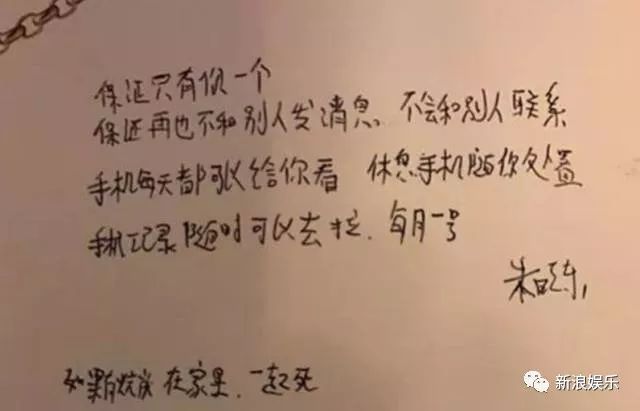 保证只有你一个
保证再也不和别人发消息 不会和别人联系
手机每天都可以给你看 休息手机随你处置
手机记录随时可以去拉.每月一号
朱晓东,
如果有 在家里.一起死
新浪娱乐